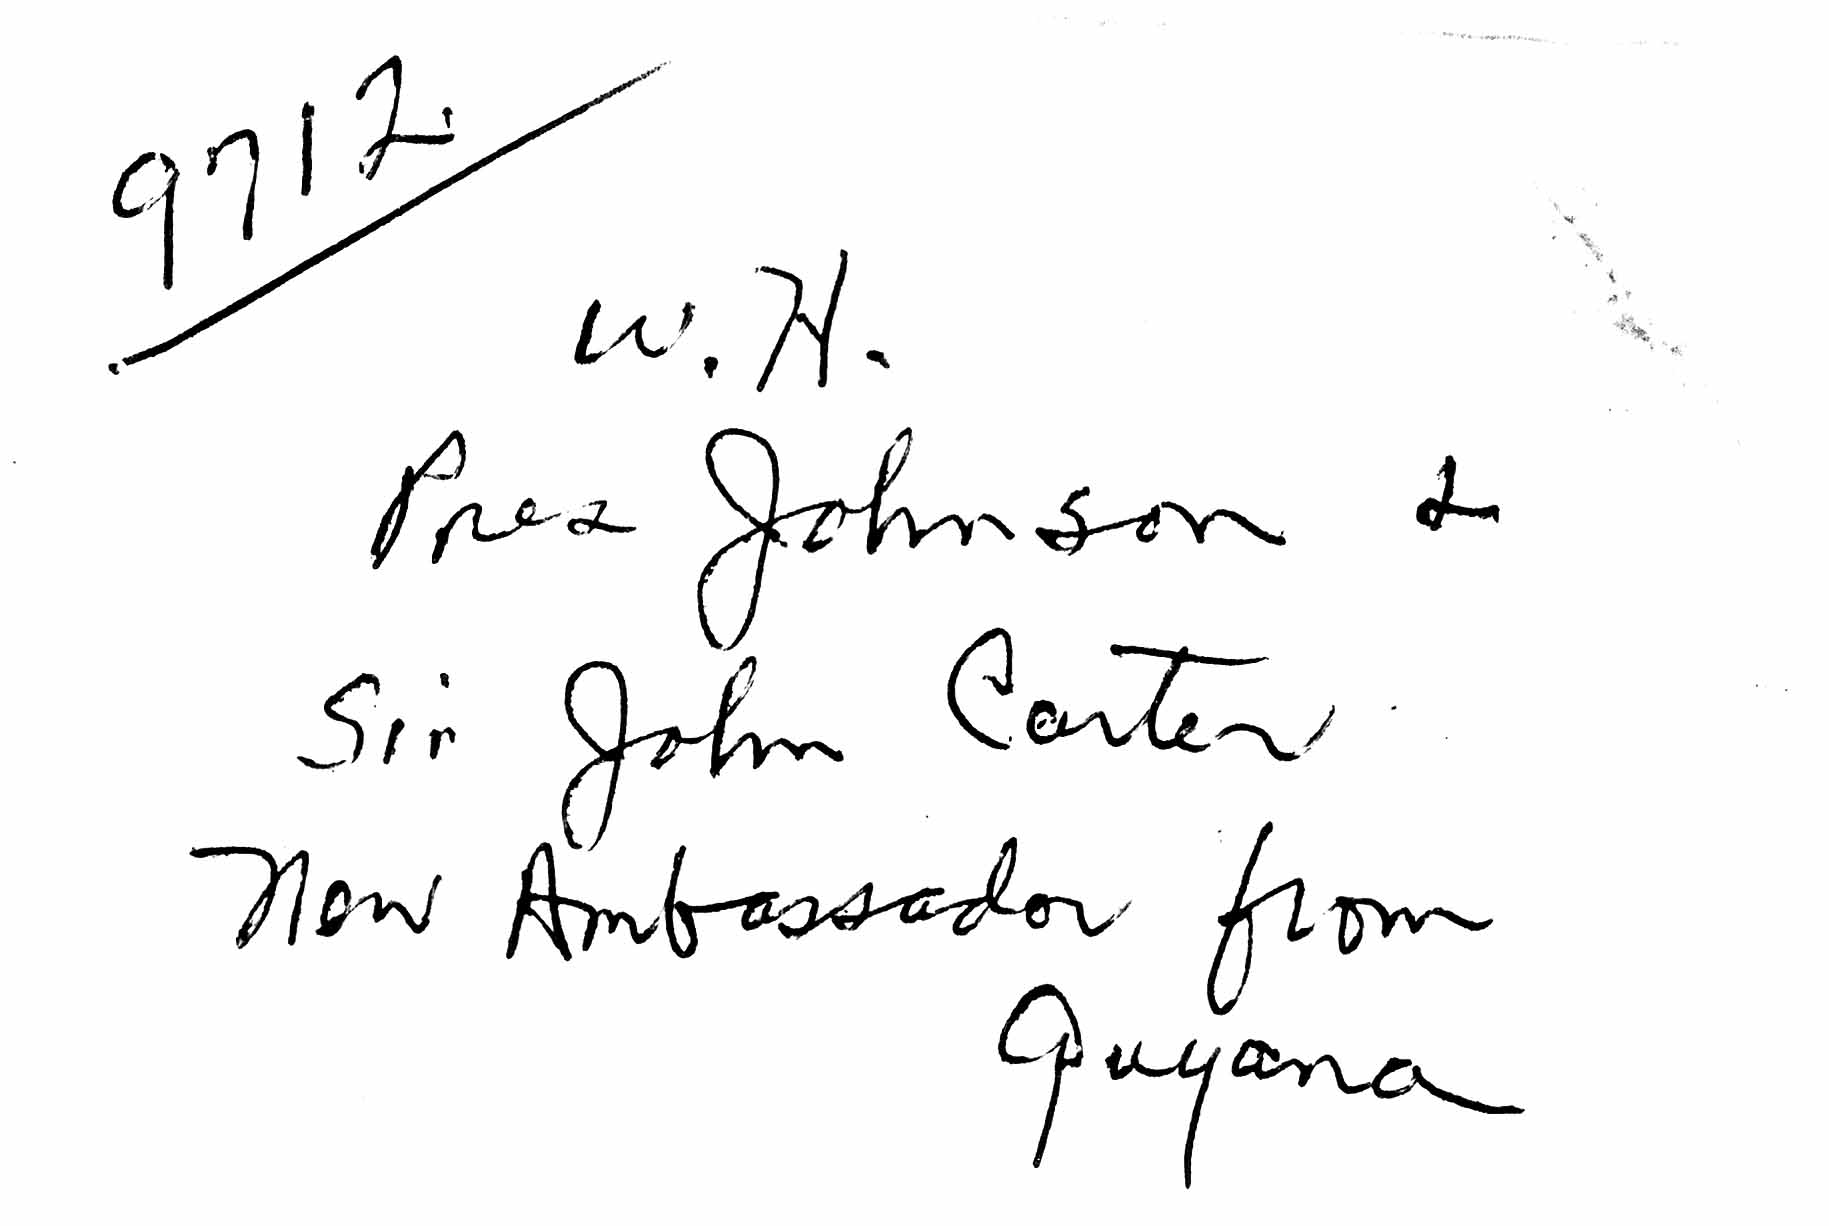 9712
W.H.
Pres Johnson &
Sir John Carter
New Ambassador from
Guyana